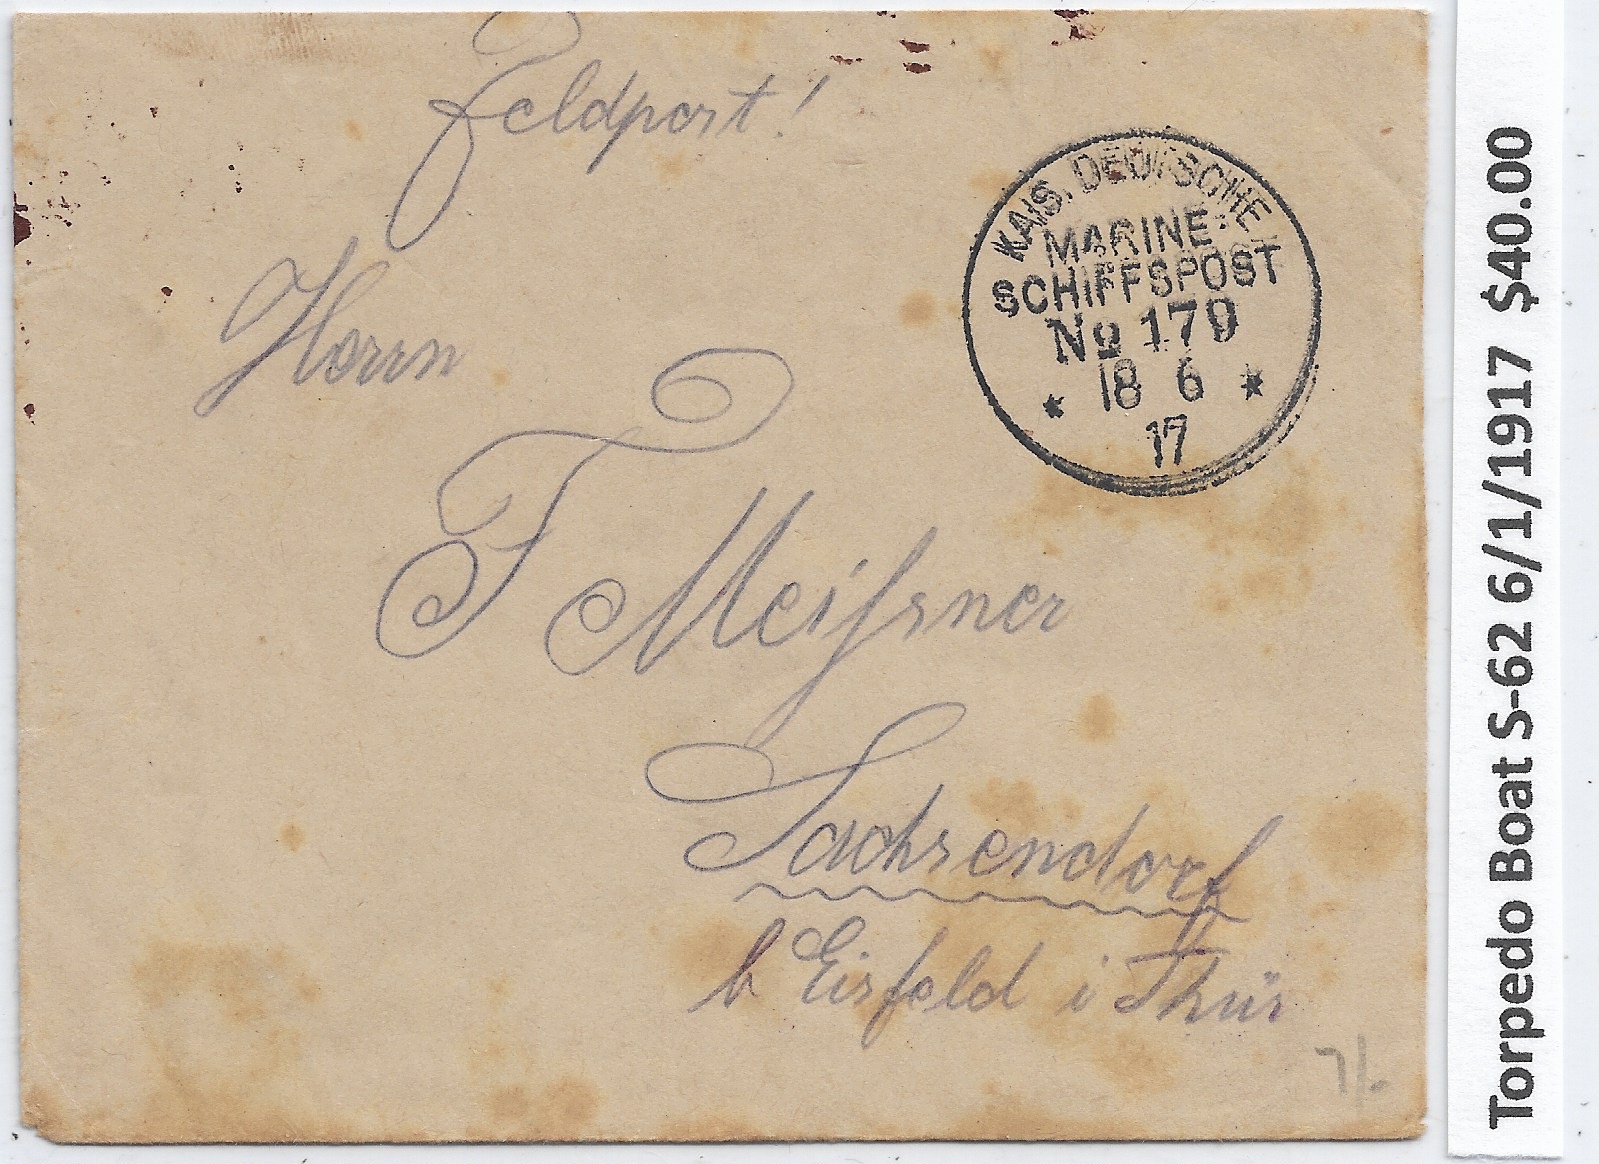 Feldpost!
KAIS. DEUTSCHE
MARINE-
SCHIFFSPOST
No 179
* 18 6 *
17
Herrn
F Meißner
Sachsendorf
b Eisfeld i Thür
7/-
Torpedo Boat S-62 6/1/1917 $40.00